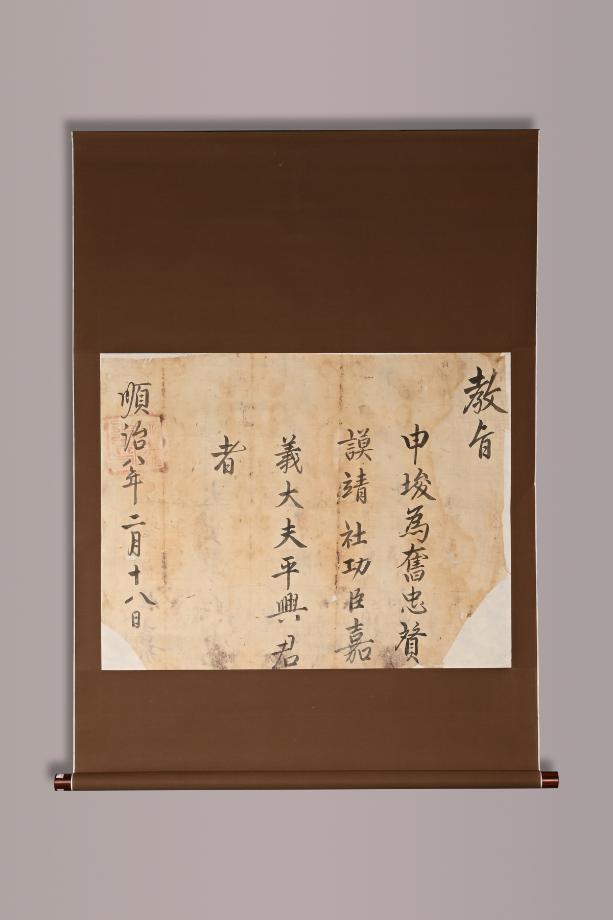 教旨
申埈為奮忠賛
謨靖社功臣嘉
義大夫平興君
者
順治八年二月十八日